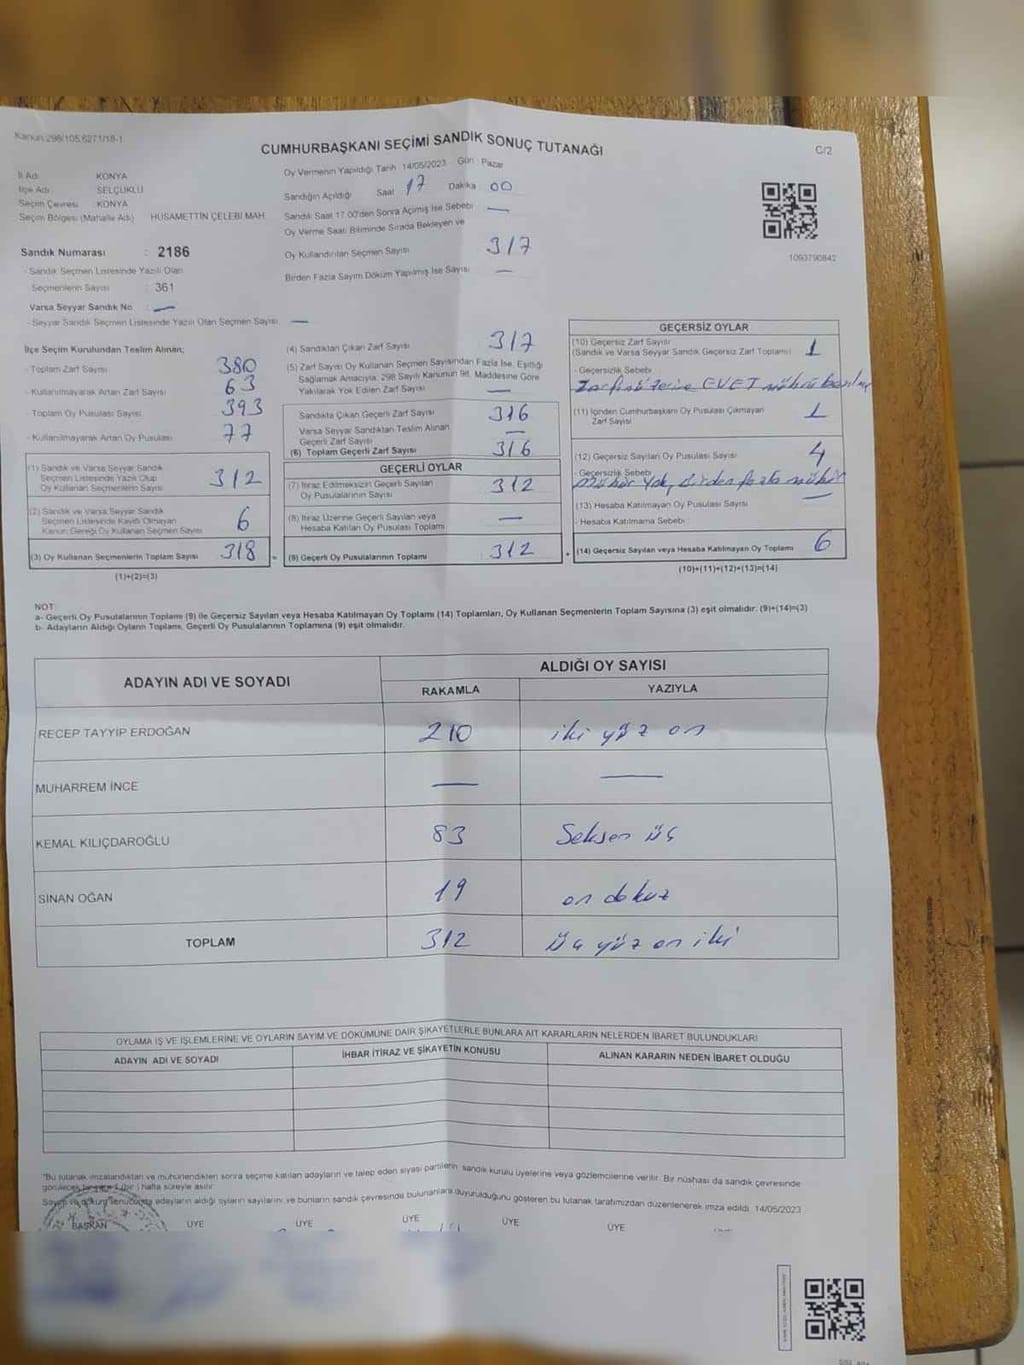 Kanun:298/105,6271/18-1
CUMHURBAŞKANI SEÇİMİ SANDIK SONUÇ TUTANAĞI
C/2
İl Adı KONYA
İlçe Adı SELÇUKLU
Seçim Çevresi KONYA
Seçim Bölgesi (Mahalle Adı) HÜSAMETTİN ÇELEBİ MAH.
Oy Vermenin Yapıldığı Tarih 14/05/2023 Gün Pazar
Sandığın Açıldığı Saat 17 Dakika 00
Sandık Saat 17.00'den Sonra Açımış İse Sebebi —
Oy Verme Saati Bitiminde Sırada Bekleyen ve
Oy Kullandırılan Seçmen Sayısı 317
Birden Fazla Sayım Döküm Yapılmış İse Sayısı —
1093790842
Sandık Numarası : 2186
- Sandık Seçmen Listesinde Yazılı Olan
Seçmenlerin Sayısı : 361
Varsa Seyyar Sandık No : —
- Seyyar Sandık Seçmen Listesinde Yazılı Olan Seçmen Sayısı : —
İlçe Seçim Kurulundan Teslim Alınan;
- Toplam Zarf Sayısı 380
- Kullanılmayarak Artan Zarf Sayısı 63
- Toplam Oy Pusulası Sayısı 393
- Kullanılmayarak Artan Oy Pusulası 77
(1) Sandık ve Varsa Seyyar Sandık
Seçmen Listesinde Yazılı Olup
Oy Kullanan Seçmenlerin Sayısı 312
(2) Sandık ve Varsa Seyyar Sandık
Seçmen Listesinde Kayıtlı Olmayan
Kanun Gereği Oy Kullanan Seçmen Sayısı 6
(3) Oy Kullanan Seçmenlerin Toplam Sayısı 318
(1)+(2)=(3)
(4) Sandıktan Çıkan Zarf Sayısı 317
(5) Zarf Sayısı Oy Kullanan Seçmen Sayısından Fazla İse, Eşitliği
Sağlamak Amacıyla, 298 Sayılı Kanunun 98. Maddesine Göre
Yakılarak Yok Edilen Zarf Sayısı —
Sandıkta Çıkan Geçerli Zarf Sayısı 316
Varsa Seyyar Sandıktan Teslim Alınan
Geçerli Zarf Sayısı —
(6) Toplam Geçerli Zarf Sayısı 316
GEÇERLİ OYLAR
(7) İtiraz Edilmeksizin Geçerli Sayılan
Oy Pusulalarının Sayısı 312
(8) İtiraz Üzerine Geçerli Sayılan veya
Hesaba Katılan Oy Pusulası Toplamı —
(9) Geçerli Oy Pusulalarının Toplamı 312
GEÇERSİZ OYLAR
(10) Geçersiz Zarf Sayısı
(Sandık ve Varsa Seyyar Sandık Geçersiz Zarf Toplamı) 1
- Geçersizlik Sebebi:
Zarfın üzerine EVET mührü
(11) İçinden Cumhurbaşkanı Oy Pusulası Çıkmayan
Zarf Sayısı 1
(12) Geçersiz Sayılan Oy Pusulası Sayısı 4
- Geçersizlik Sebebi
Mühür Yok, birden fazla mühür
(13) Hesaba Katılmayan Oy Pusulası Sayısı —
- Hesaba Katılmama Sebebi :
(14) Geçersiz Sayılan veya Hesaba Katılmayan Oy Toplamı 6
(10)+(11)+(12)+(13)=(14)
NOT:
a- Geçerli Oy Pusulalarının Toplamı (9) ile Geçersiz Sayılan veya Hesaba Katılmayan Oy Toplamı (14) Toplamları, Oy Kullanan Seçmenlerin Toplam Sayısına (3) eşit olmalıdır. (9)+(14)=(3)
b- Adayların Aldığı Oyların Toplamı, Geçerli Oy Pusulalarının Toplamına (9) eşit olmalıdır.
ADAYIN ADI VE SOYADI ALDIĞI OY SAYISI
RAKAMLA YAZIYLA
RECEP TAYYİP ERDOĞAN 210 iki yüz on
MUHARREM İNCE — —
KEMAL KILIÇDAROĞLU 83 Seksen üç
SİNAN OĞAN 19 on dokuz
TOPLAM 312 Üç yüz on iki
OYLAMA İŞ VE İŞLEMLERİNE VE OYLARIN SAYIM VE DÖKÜMÜNE DAİR ŞİKAYETLERLE BUNLARA AİT KARARLARIN NELERDEN İBARET BULUNDUKLARI
ADAYIN ADI VE SOYADI İHBAR İTİRAZ VE ŞİKAYETİN KONUSU ALINAN KARARIN NEDEN İBARET OLDUĞU
*Bu tutanak imzalandıktan ve mühürlendikten sonra seçime katılan adayların ve talep eden siyasi partilerin sandık kurulu üyelerine veya gözlemcilerine verilir. Bir nüshası da sandık çevresinde
görülecek bir yere 1 (bir) hafta süreyle asılır.
Sayım ve döküm sonucunda adayların aldığı oyların sayılarını ve bunların sandık çevresinde bulunanlara duyurulduğunu gösteren bu tutanak tarafımızdan düzenlenerek imza edildi. 14/05/2023
BAŞKAN ÜYE ÜYE ÜYE ÜYE ÜYE